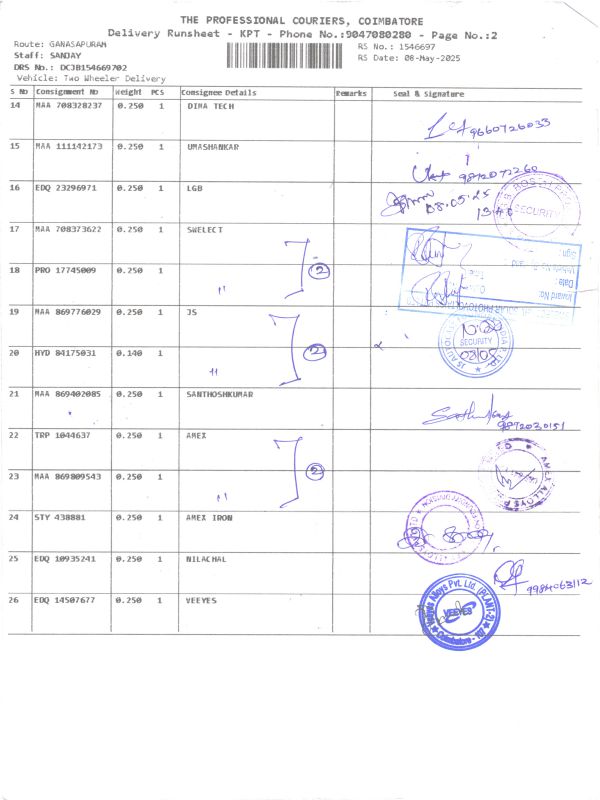 THE PROFESSIONAL COURIERS, COIMBATORE
Delivery Runsheet - KPT - Phone No.:9047080280 - Page No.:2
Route: GANASAPURAM
Staff: SANJAY
DRS No.: DCJB154669702
Vehicle: Two Wheeler Delivery
RS No.: 1546697
RS Date: 08-May-2025
S No Consignment No Weight PCS Consignee Details Remarks Seal & Signature
14 MAA 708328237 0.250 1 DIMA TECH
9660726033
15 MAA 111142173 0.250 1 UMASHANKAR
16 EDQ 23296971 0.250 1 LGB
08.05.25
SECURITY
17 MAA 708373622 0.250 1 SWELECT
18 PRO 17745009 0.250 1 " 2
Sign :
Date :
Inward No:
19 MAA 869776029 0.250 1 JS
20 HYD 84175031 0.140 1 " 2
SECURITY
21 MAA 869402085 0.250 1 SANTHOSHKUMAR
22 TRP 1044637 0.250 1 AMEX
23 MAA 869809543 0.250 1 " 2
24 STY 438881 0.250 1 AMEX IRON
25 EDQ 10935241 0.250 1 NILACHAL
9984063112
26 EDQ 14507677 0.250 1 VEEYES
VEEYES